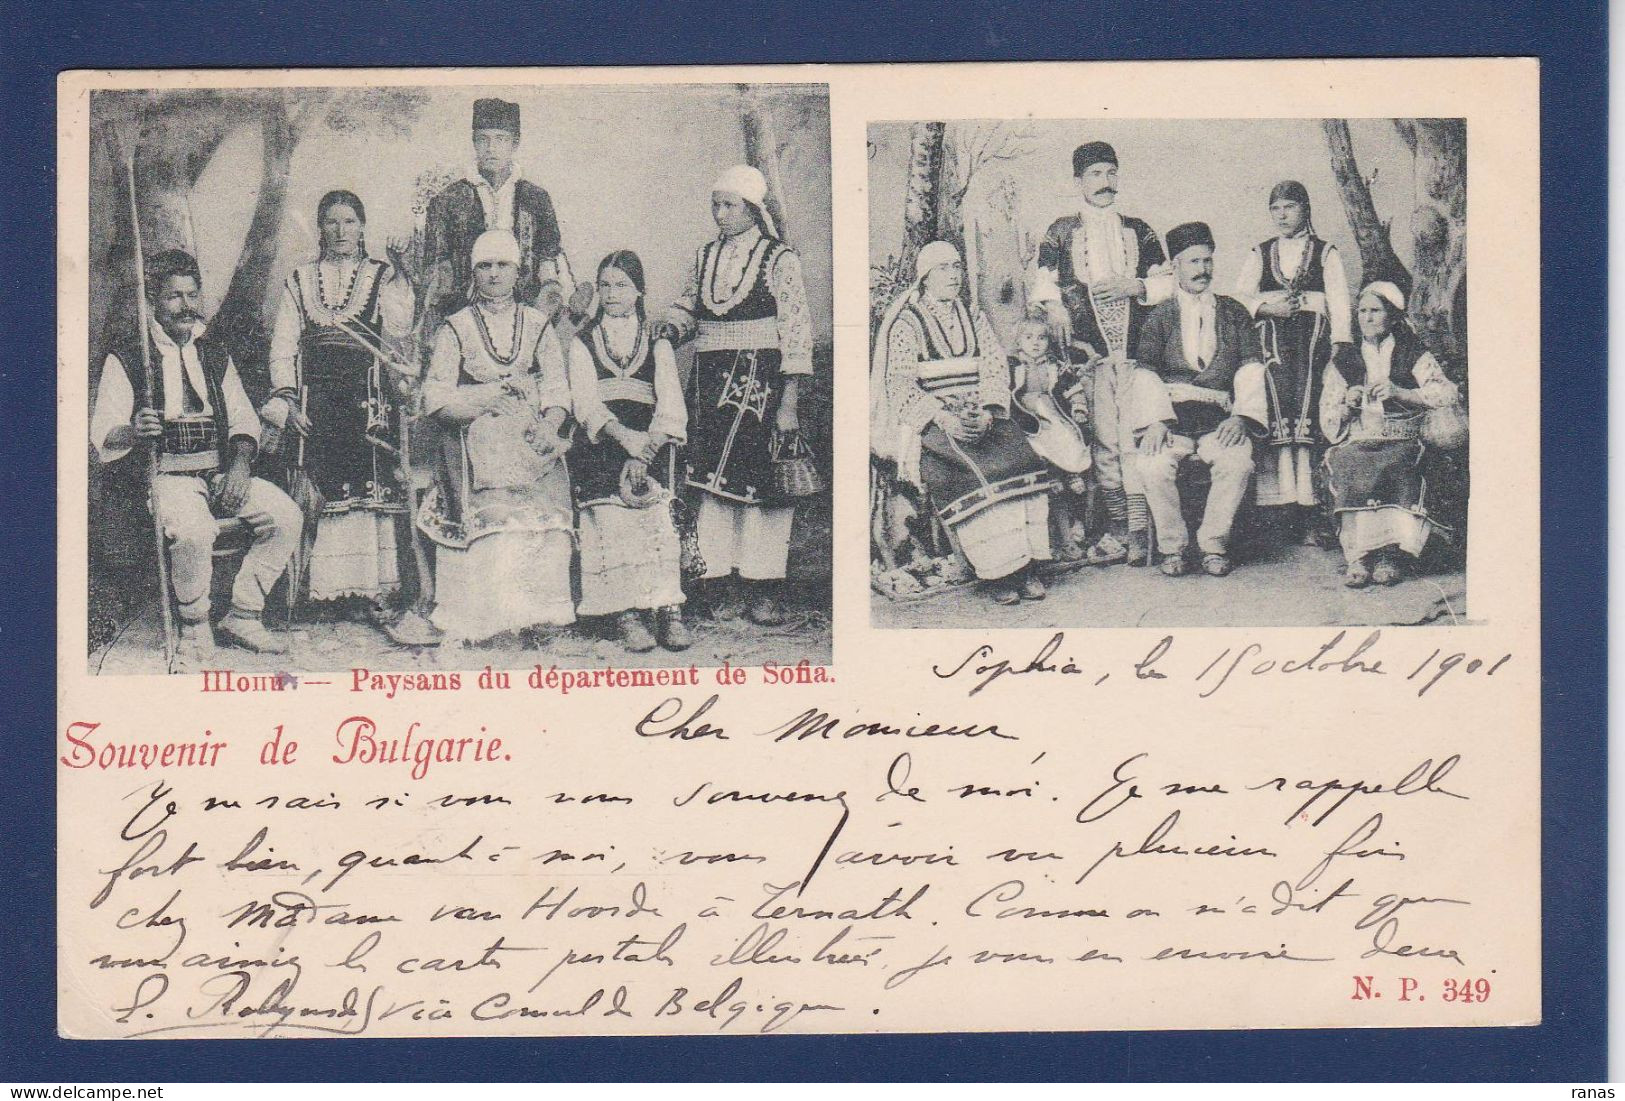 Шопи — Paysans du département de Sofia.
Sophia, le 15 octobre 1901
Souvenir de Bulgarie.
Cher Monsieur,
Je ne sais si vous vous souvenez de moi. Je me rappelle
fort bien, quant à moi, vous avoir vu plusieurs fois
chez Madame van Hoorde à Ternath. Comme on m'a dit que
vous aimiez les cartes postales illustrées, je vous en envoie deux.
N. P. 349
Vice Consul de Belgique.
ranas